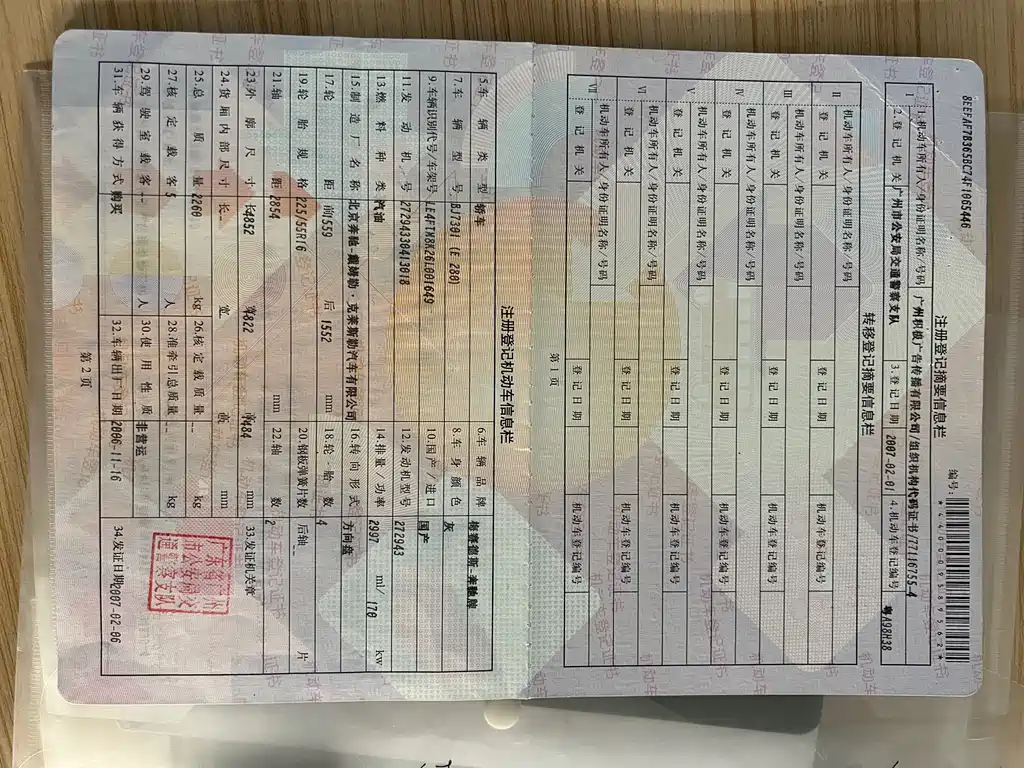 8EEFAF7B365BEC74F1065446
编号:
*440009589562*
注册登记摘要信息栏
I 1.机动车所有人/身份证明名称/号码 广州积极广告传播有限公司/组织机构代码证书/77116755-4
2.登记机关 广州市公安局交通警察支队 3.登记日期 2007-02-01 4.机动车登记编号 粤A98H38
转移登记摘要信息栏
II 机动车所有人/身份证明名称/号码
登记机关 登记日期 机动车登记编号
III 机动车所有人/身份证明名称/号码
登记机关 登记日期 机动车登记编号
IV 机动车所有人/身份证明名称/号码
登记机关 登记日期 机动车登记编号
V 机动车所有人/身份证明名称/号码
登记机关 登记日期 机动车登记编号
VI 机动车所有人/身份证明名称/号码
登记机关 登记日期 机动车登记编号
VII 机动车所有人/身份证明名称/号码
登记机关 登记日期 机动车登记编号
第1页
注册登记机动车信息栏
5.车辆类型 轿车 6.车辆品牌 梅赛德斯-奔驰牌
7.车辆型号 BJ7301 (E 280) 8.车身颜色 灰
9.车辆识别代号/车架号 LE4FTM8K26L001649 10.国产/进口 国产
11.发动机号 27294330413018 12.发动机型号 272943
13.燃料种类 汽油 14.排量/功率 2997 ml/ 170 kw
15.制造厂名称 北京奔驰-戴姆勒·克莱斯勒汽车有限公司 16.转向形式 方向盘
17.轮距 前 1559 后 1552 mm 18.轮胎数 4
19.轮胎规格 225/55R16 20.钢板弹簧片数 后轴 -- 片
21.轴距 2854 mm 22.轴数 2
23.外廓尺寸 长 4852 宽 1822 高 1484 mm 33.发证机关章
24.货厢内部尺寸 长 宽 高 mm
25.总质量 2260 kg 26.核定载质量 -- kg
27.核定载客 5 人 28.准牵引总质量 -- kg
29.驾驶室载客 -- 人 30.使用性质 非营运
31.车辆获得方式 购买 32.车辆出厂日期 2006-11-16 34.发证日期 2007-02-06
第2页